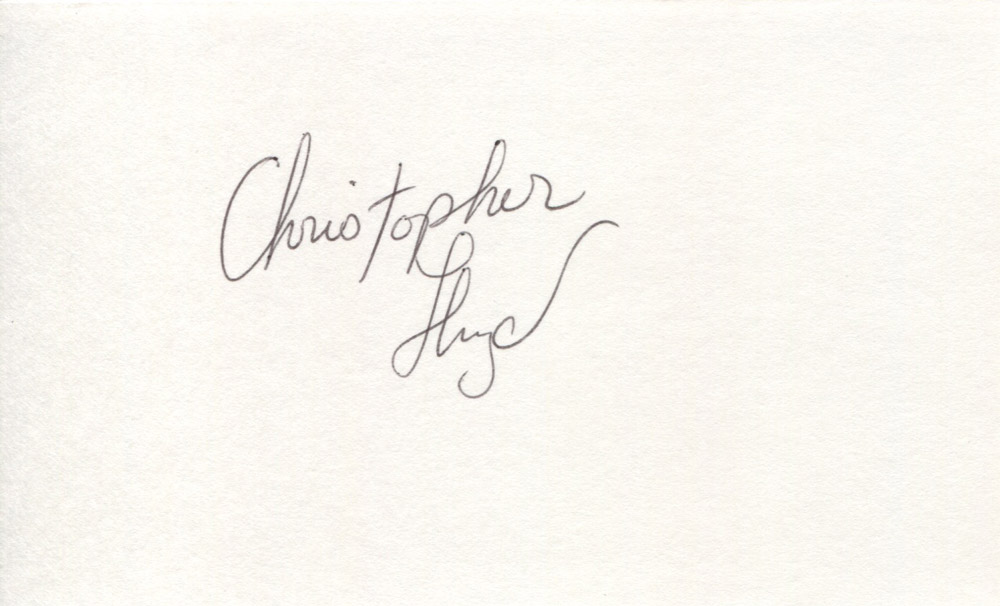 Christopher
Lloyd